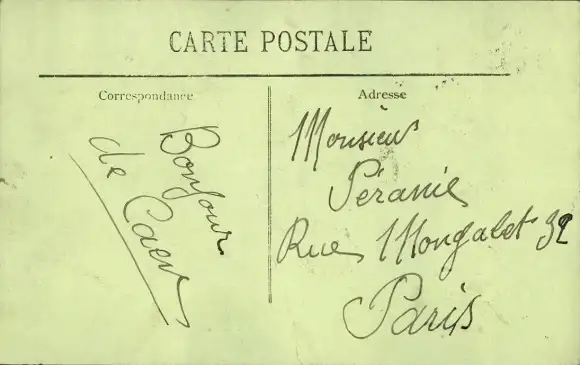 CARTE POSTALE
Correspondance
Adresse
Bonjour
de Caen
Monsieur
Péranie
Rue Mongalet 32
Paris